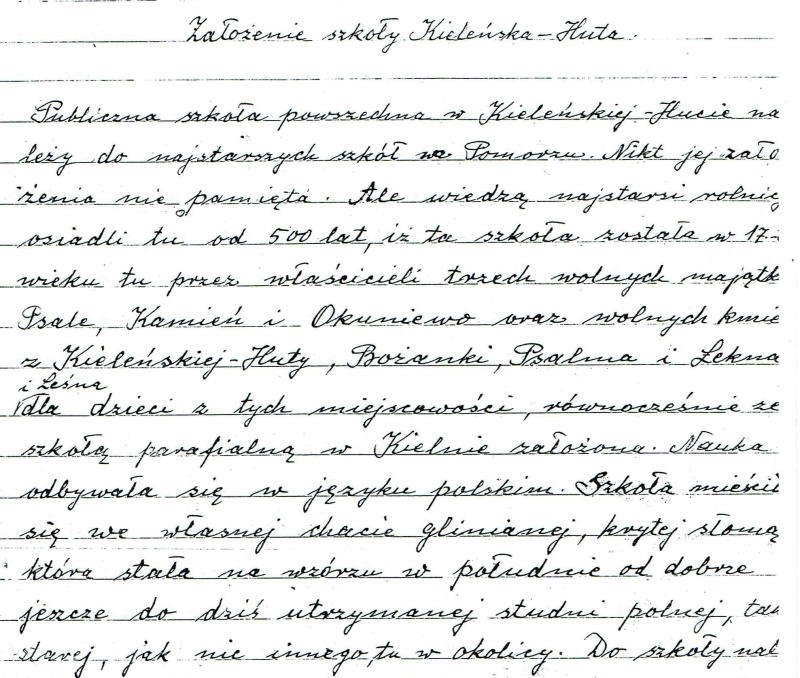 Założenie szkoły Kieleńska-Huta.
Publiczna szkoła powszechna w Kieleńskiej-Hucie na
leży do najstarszych szkół we Pomorzu. Nikt jej zało
żenia nie pamięta. Ale wiedzą najstarsi rolnic
osiadli tu od 500 lat, iż ta szkoła została w 17-
wieku tu przez właścicieli trzech wolnych majątk
Psale, Kamień i Okuniewo oraz wolnych kmie
z Kieleńskiej-Huty, Bożanki, Psalma i Łekna
i Leśna
dla dzieci z tych miejscowości, równocześnie ze
szkołą parafialną w Kielnie założona. Nauka
odbywała się w języku polskim. Szkoła mieści
się we własnej chacie glinianej, krytej słomą
która stała na wzórzu w południe od dobrze
jeszcze do dziś utrzymanej studni polnej, tak
starej, jak nic innego tu w okolicy. Do szkoły nal